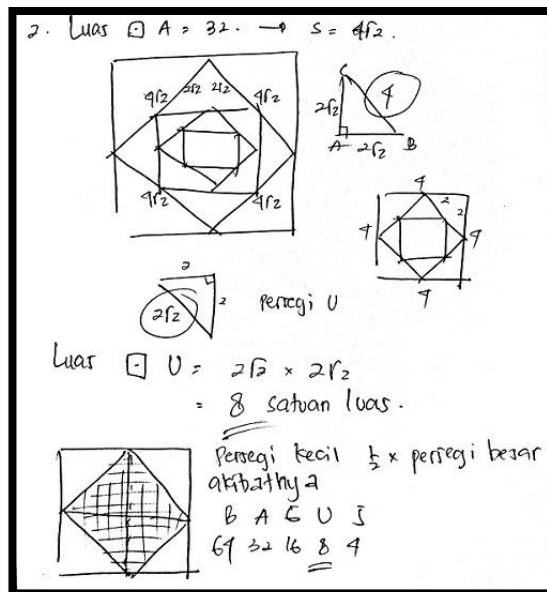 2. Luas ⊡ A = 32. → S = 4√2.
4√2 2√2 2√2 4√2
4√2 4√2
C
2√2 4
A 2√2 B
4
2 2
4 4
4
2
2
2√2
Persegi U
Luas ⊡ U = 2√2 × 2√2
= 8 satuan luas.
Persegi kecil ½ × persegi besar
akibatnya
B A G U S
64 32 16 8 4